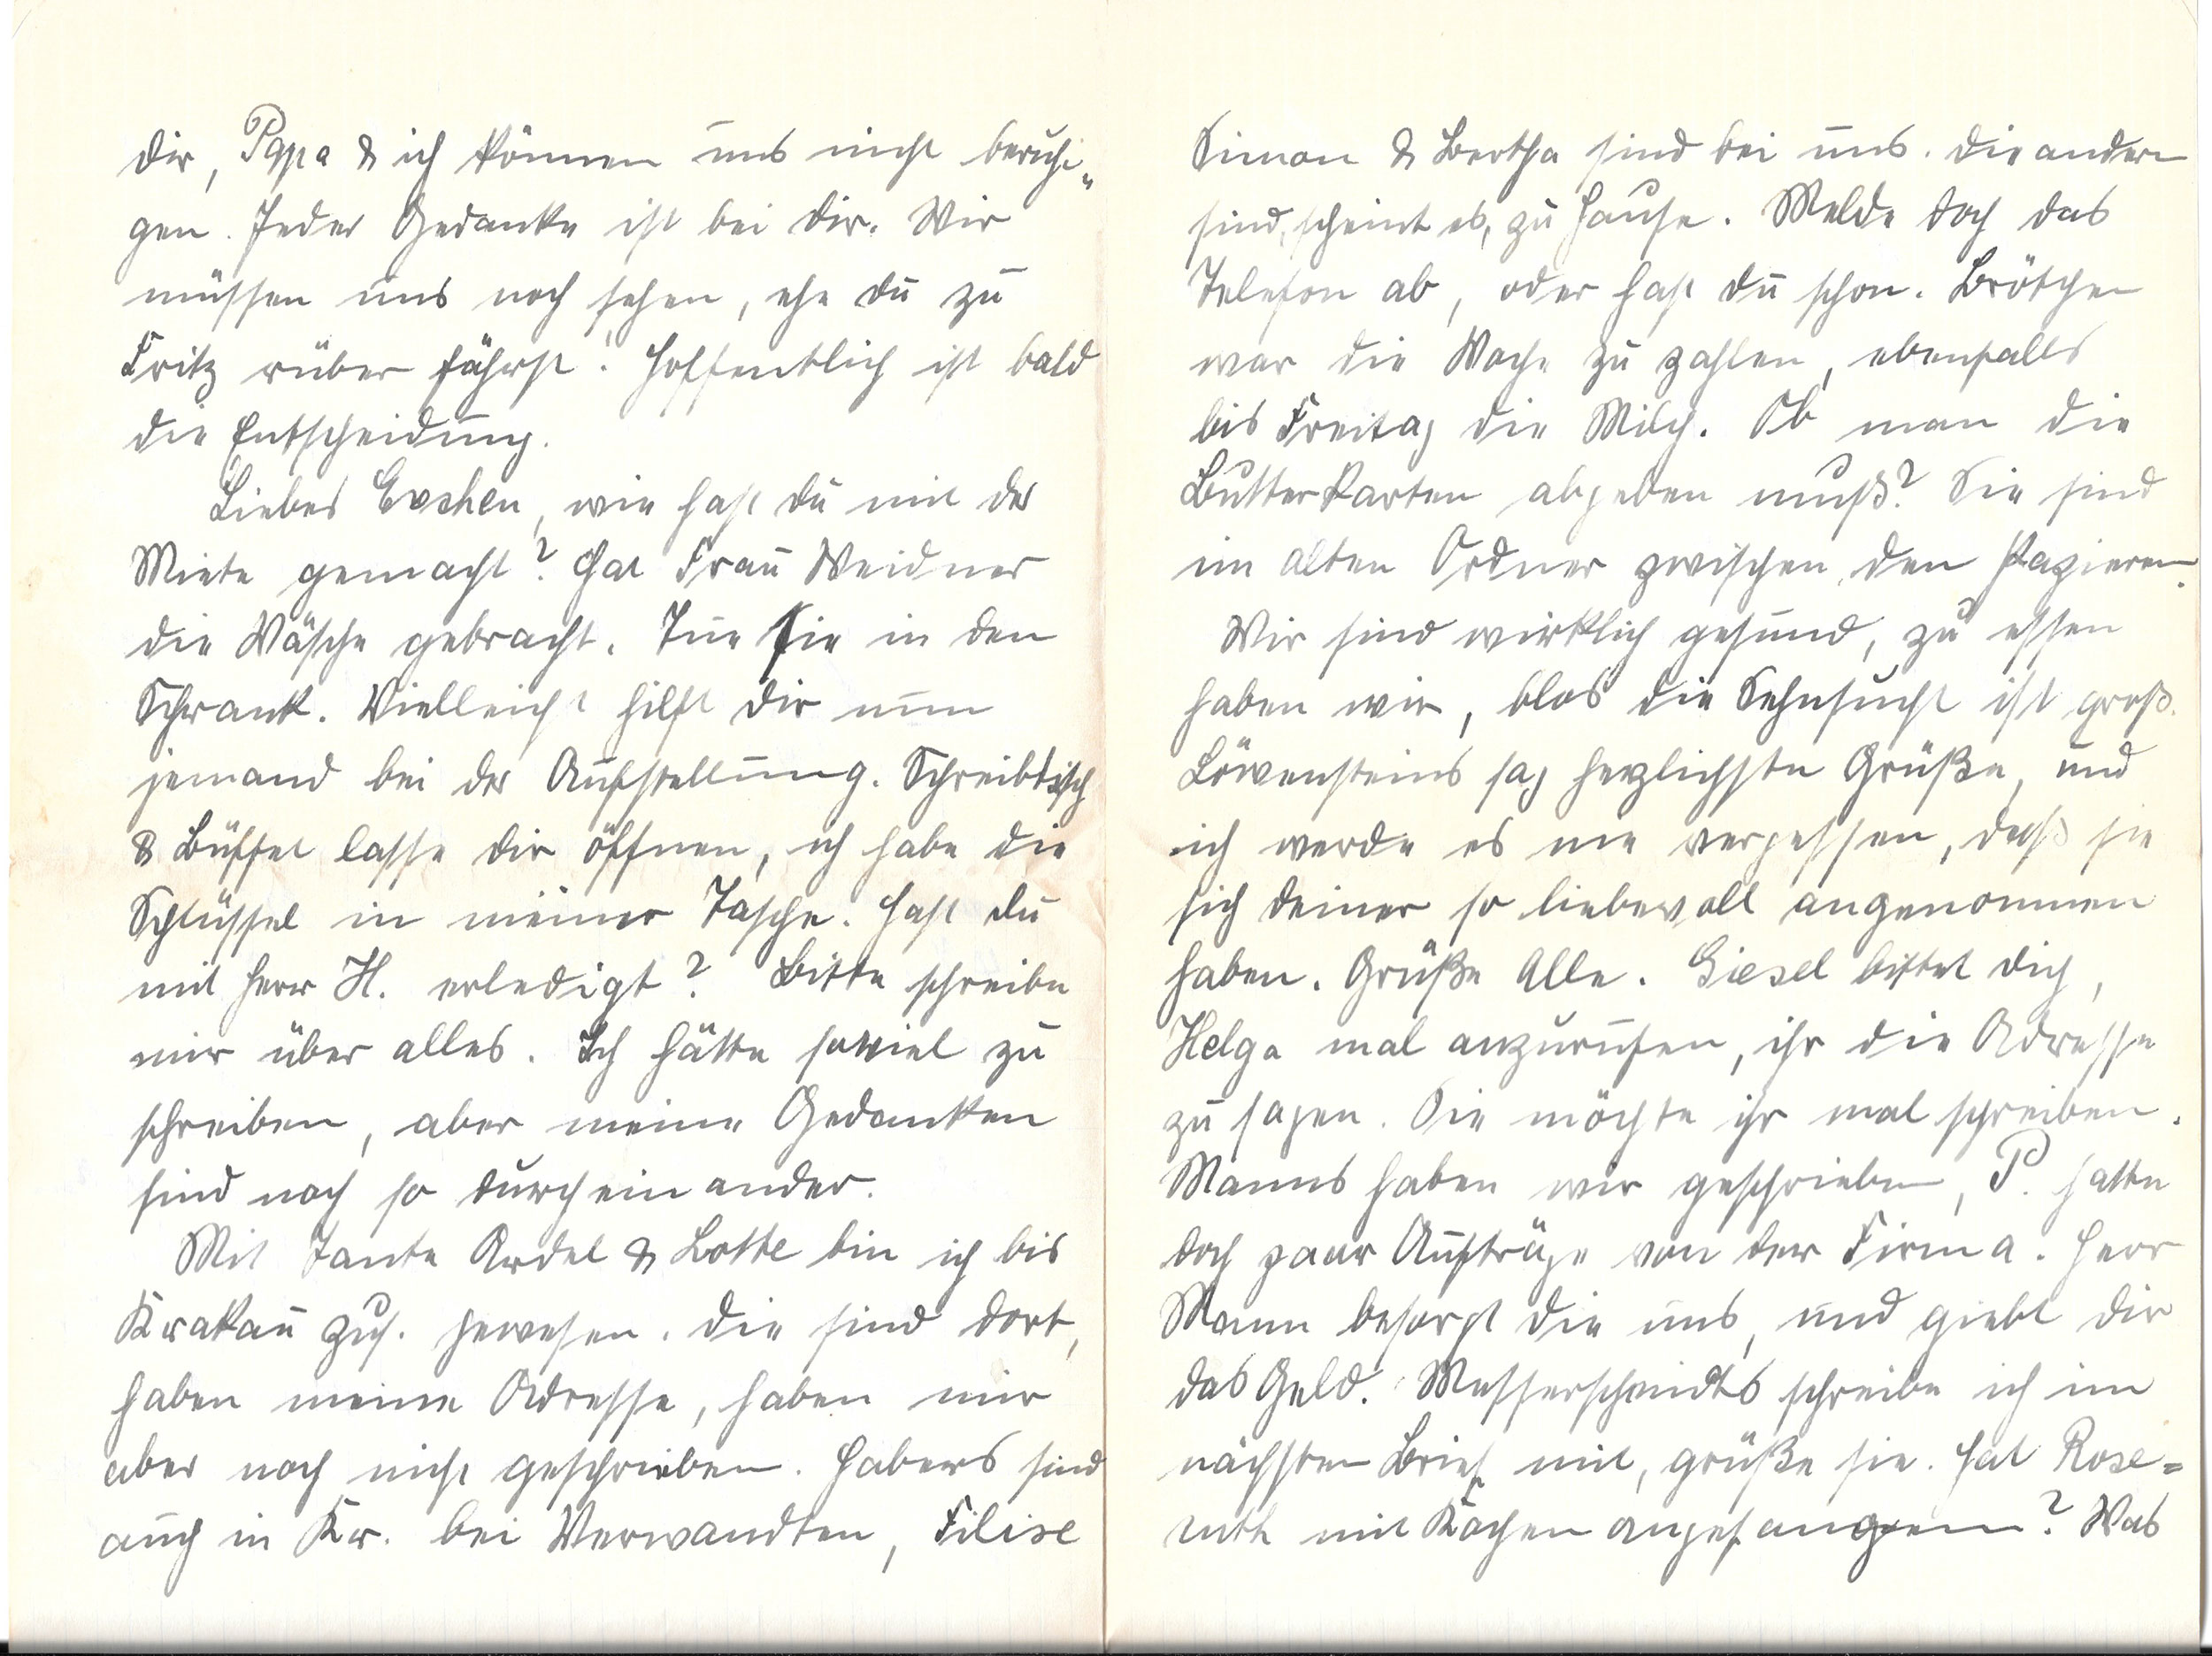 dir, Papa & ich können uns nicht beruhi„
gen. Jeder Gedanke ist bei dir. Wir
müssen uns noch sehen, ehe du zu
Fritz rüber fährst. Hoffentlich ist bald
die Entscheidung.
Liebes Evchen, wie hast du mit der
Miete gemacht? Hat Frau Weidner
die Wäsche gebracht. Tue sie in den
Schrank. Vielleicht hilft dir nun
jemand bei der Aufstellung. Schreibtisch
& Büffet lasse dir öffnen, ich habe die
Schlüssel in meiner Tasche. Hast du
mit Herr H. erledigt? Bitte schreibe
mir über alles. Ich hätte soviel zu
schreiben, aber meine Gedanken
sind noch so durcheinander.
Mit Tante Ardel & Lotte bin ich bis
Krakau zus. gewesen. Die sind dort,
haben meine Adresse, haben mir
aber noch nicht geschrieben. Habers sind
auch in Kr. bei Verwandten, Filise
Simon & Bertha sind bei uns. Die andern
sind, scheint es, zu Hause. Melde doch das
Telefon ab, oder hast du schon. Brötchen
war die Woche zu zahlen, ebenfalls
bis Freitag die Milch. Ob man die
Butterkarten abgeben muß? Sie sind
im alten Ordner zwischen den Papieren.
Wir sind wirklich gesund, zu essen
haben wir, blos die Sehnsucht ist groß.
Löwensteins sag herzlichste Grüße, und
ich werde es nie vergessen, daß sie
sich deiner so liebevoll angenommen
haben. Grüße Alle. Giesel bittet dich,
Helga mal anzurufen, ihr die Adresse
zu sagen. Sie möchte ihr mal schreiben.
Manns haben wir geschrieben, P. hatte
doch paar Aufträge von der Firma. Herr
Mann besorgt die uns, und giebt dir
das Geld. Messerschmidts schreibe ich im
nächsten Brief mit, grüße sie. Hat Rose=
ruth mit Kochen angefangen? Was